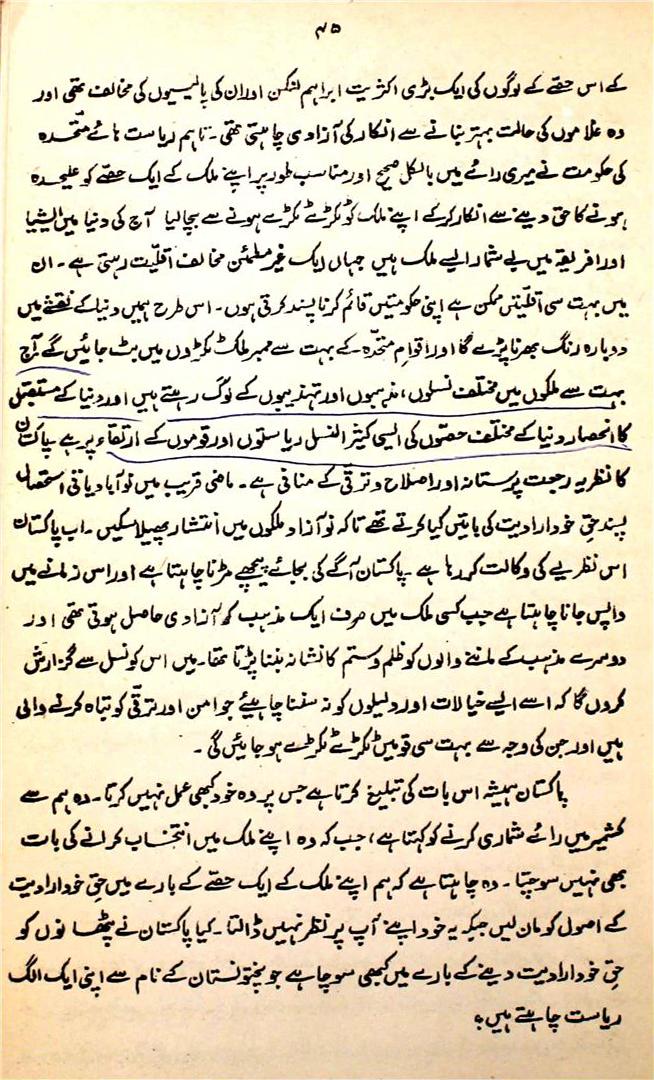 ۴۵
کے اس حصّے کے لوگوں کی ایک بڑی اکثریت ابراہم لنکن اور ان کی پالیسیوں کی مخالف تھی اور
وہ غلاموں کی حالت بہتر بنانے سے انکار کی آزادی چاہتی تھی۔ تاہم ریاست ہائے متّحدہ
کی حکومت نے میری رائے میں بالکل صحیح اور مناسب طور پر اپنے ملک کے ایک حصّے کو علیحدہ
ہونے کا حق دینے سے انکار کر کے اپنے ملک کو ٹکڑے ٹکڑے ہونے سے بچا لیا آج کی دنیا میں ایشیا
اور افریقہ میں بے شمار ایسے ملک ہیں جہاں ایک غیر مطمئن مخالف اقلیّت رہتی ہے۔ ان
میں بہت سی اقلیتیں ممکن ہے اپنی حکومتیں قائم کرنا پسند کرتی ہوں۔ اس طرح ہمیں دنیا کے نقشے میں
دوبارہ رنگ بھرنا پڑے گا اور اقوام متحدّہ کے بہت سے ممبر ملک ٹکڑوں میں بٹ جائیں گے۔ آج
بہت سے ملکوں میں مختلف نسلوں، مذہبوں اور تہذیبوں کے لوگ رہتے ہیں اور دنیا کے مستقبل
کا انحصار دنیا کے مختلف حصّوں کی ایسی کثیر النسل ریاستوں اور قوموں کے ارتقاء پر ہے۔ پاکستان
کا نظریہ رجعت پرستانہ اور اصلاح و ترقی کے منافی ہے۔ ماضی قریب میں نوآبادیاتی استحصال
پسند حقِ خود ارادیت کی باتیں کیا کرتے تھے تاکہ نو آزاد ملکوں میں انتشار پھیلا سکیں۔ اب پاکستان
اس نظریے کی وکالت کر رہا ہے۔ پاکستان آگے کی بجائے پیچھے مڑنا چاہتا ہے اور اس زمانے میں
واپس جانا چاہتا ہے جب کسی ملک میں صرف ایک مذہب کو آزادی حاصل ہوتی تھی اور
دوسرے مذہب کے ماننے والوں کو ظلم و ستم کا نشانہ بننا پڑتا تھا۔ میں اس کونسل سے گزارش
کروں گا کہ اسے ایسے خیالات اور دلیلوں کو نہ سننا چاہیئے جو امن اور ترقّی کو تباہ کرنے والی
ہیں اور جن کی وجہ سے بہت سی قومیں ٹکڑے ٹکڑے ہو جائیں گی۔
پاکستان ہمیشہ اس بات کی تبلیغ کرتا ہے جس پر وہ خود کبھی عمل نہیں کرتا۔ وہ ہم سے
کشمیر میں رائے شماری کرنے کو کہتا ہے، جب کہ وہ اپنے ملک میں انتخاب کرانے کی بات
بھی نہیں سوچتا۔ وہ چاہتا ہے کہ ہم اپنے ملک کے ایک حصّے کے بارے میں حقِ خود ارادیت
کے اصول کو مان لیں جبکہ یہ خود اپنے آپ پر نظر نہیں ڈالتا۔ کیا پاکستان نے پٹھانوں کو
حقِ خود ارادیت دینے کے بارے میں کبھی سوچا ہے جو پختونستان کے نام سے اپنی ایک الگ
ریاست چاہتے ہیں؟